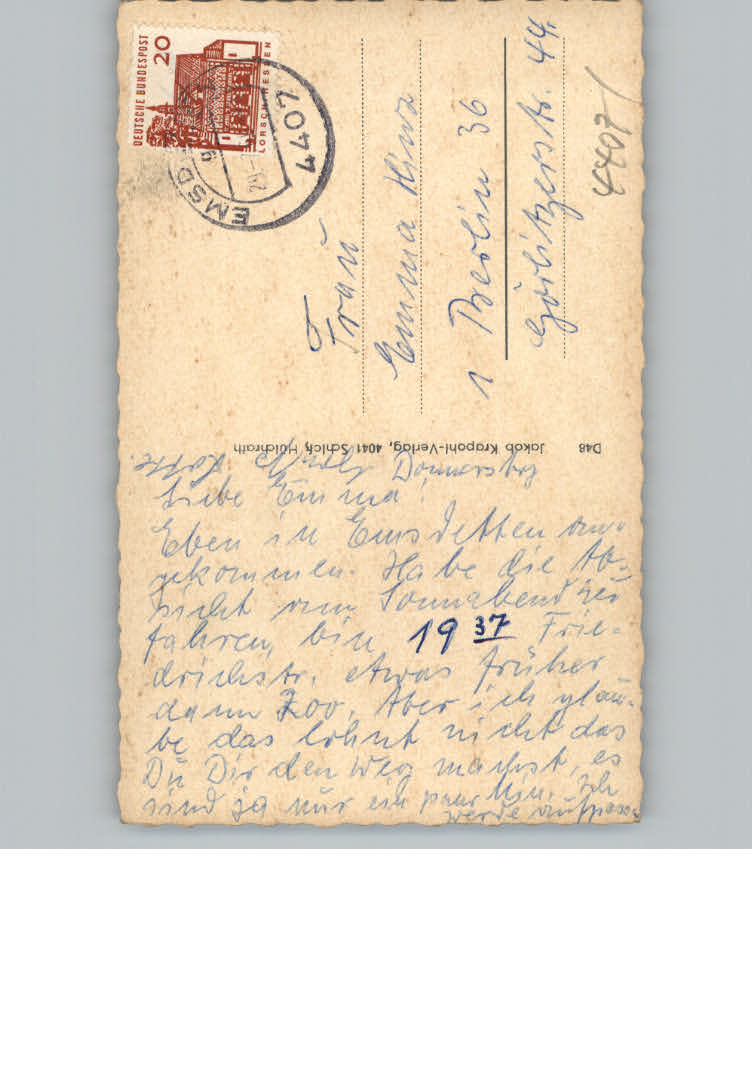 DEUTSCHE BUNDESPOST
20
LORSCH/HESSEN
4407
EMSD
29.
Frau
Emma Hinz
1 Berlin 36
Görlitzerstr. 44.
4407/
D48 Jakob Krapohl-Verlag, 4041 Schlich, Hülchrath
Donnersbg
Liebe Emma!
Eben in Emsdetten an-
gekommen. Habe die Ab-
sicht am Sonnabend zu
fahren, bin 19 37 Frie-
drichstr. etwas früher
dann Zoo. Aber ich glau-
be das lohnt nicht das
Du Dir den Weg machst, es
sind ja nur ein paar Min. Ich
werde aufpassen